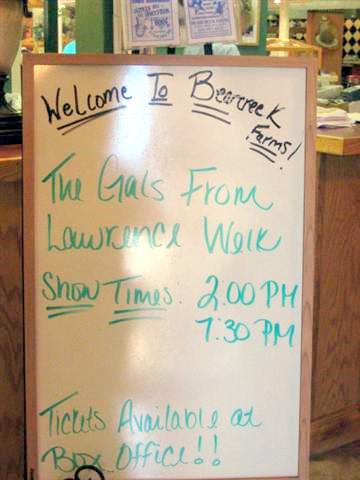 Welcome To Bearcreek
Farms!
The Gals From
Lawrence Welk
Show Times: 2:00 PM
7:30 PM
Tickets Available at
Box Office!!